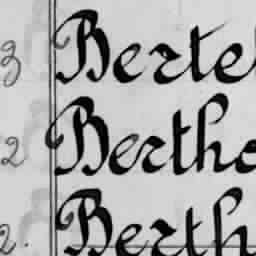 3 Bertel
2 Bertho
2. Berth